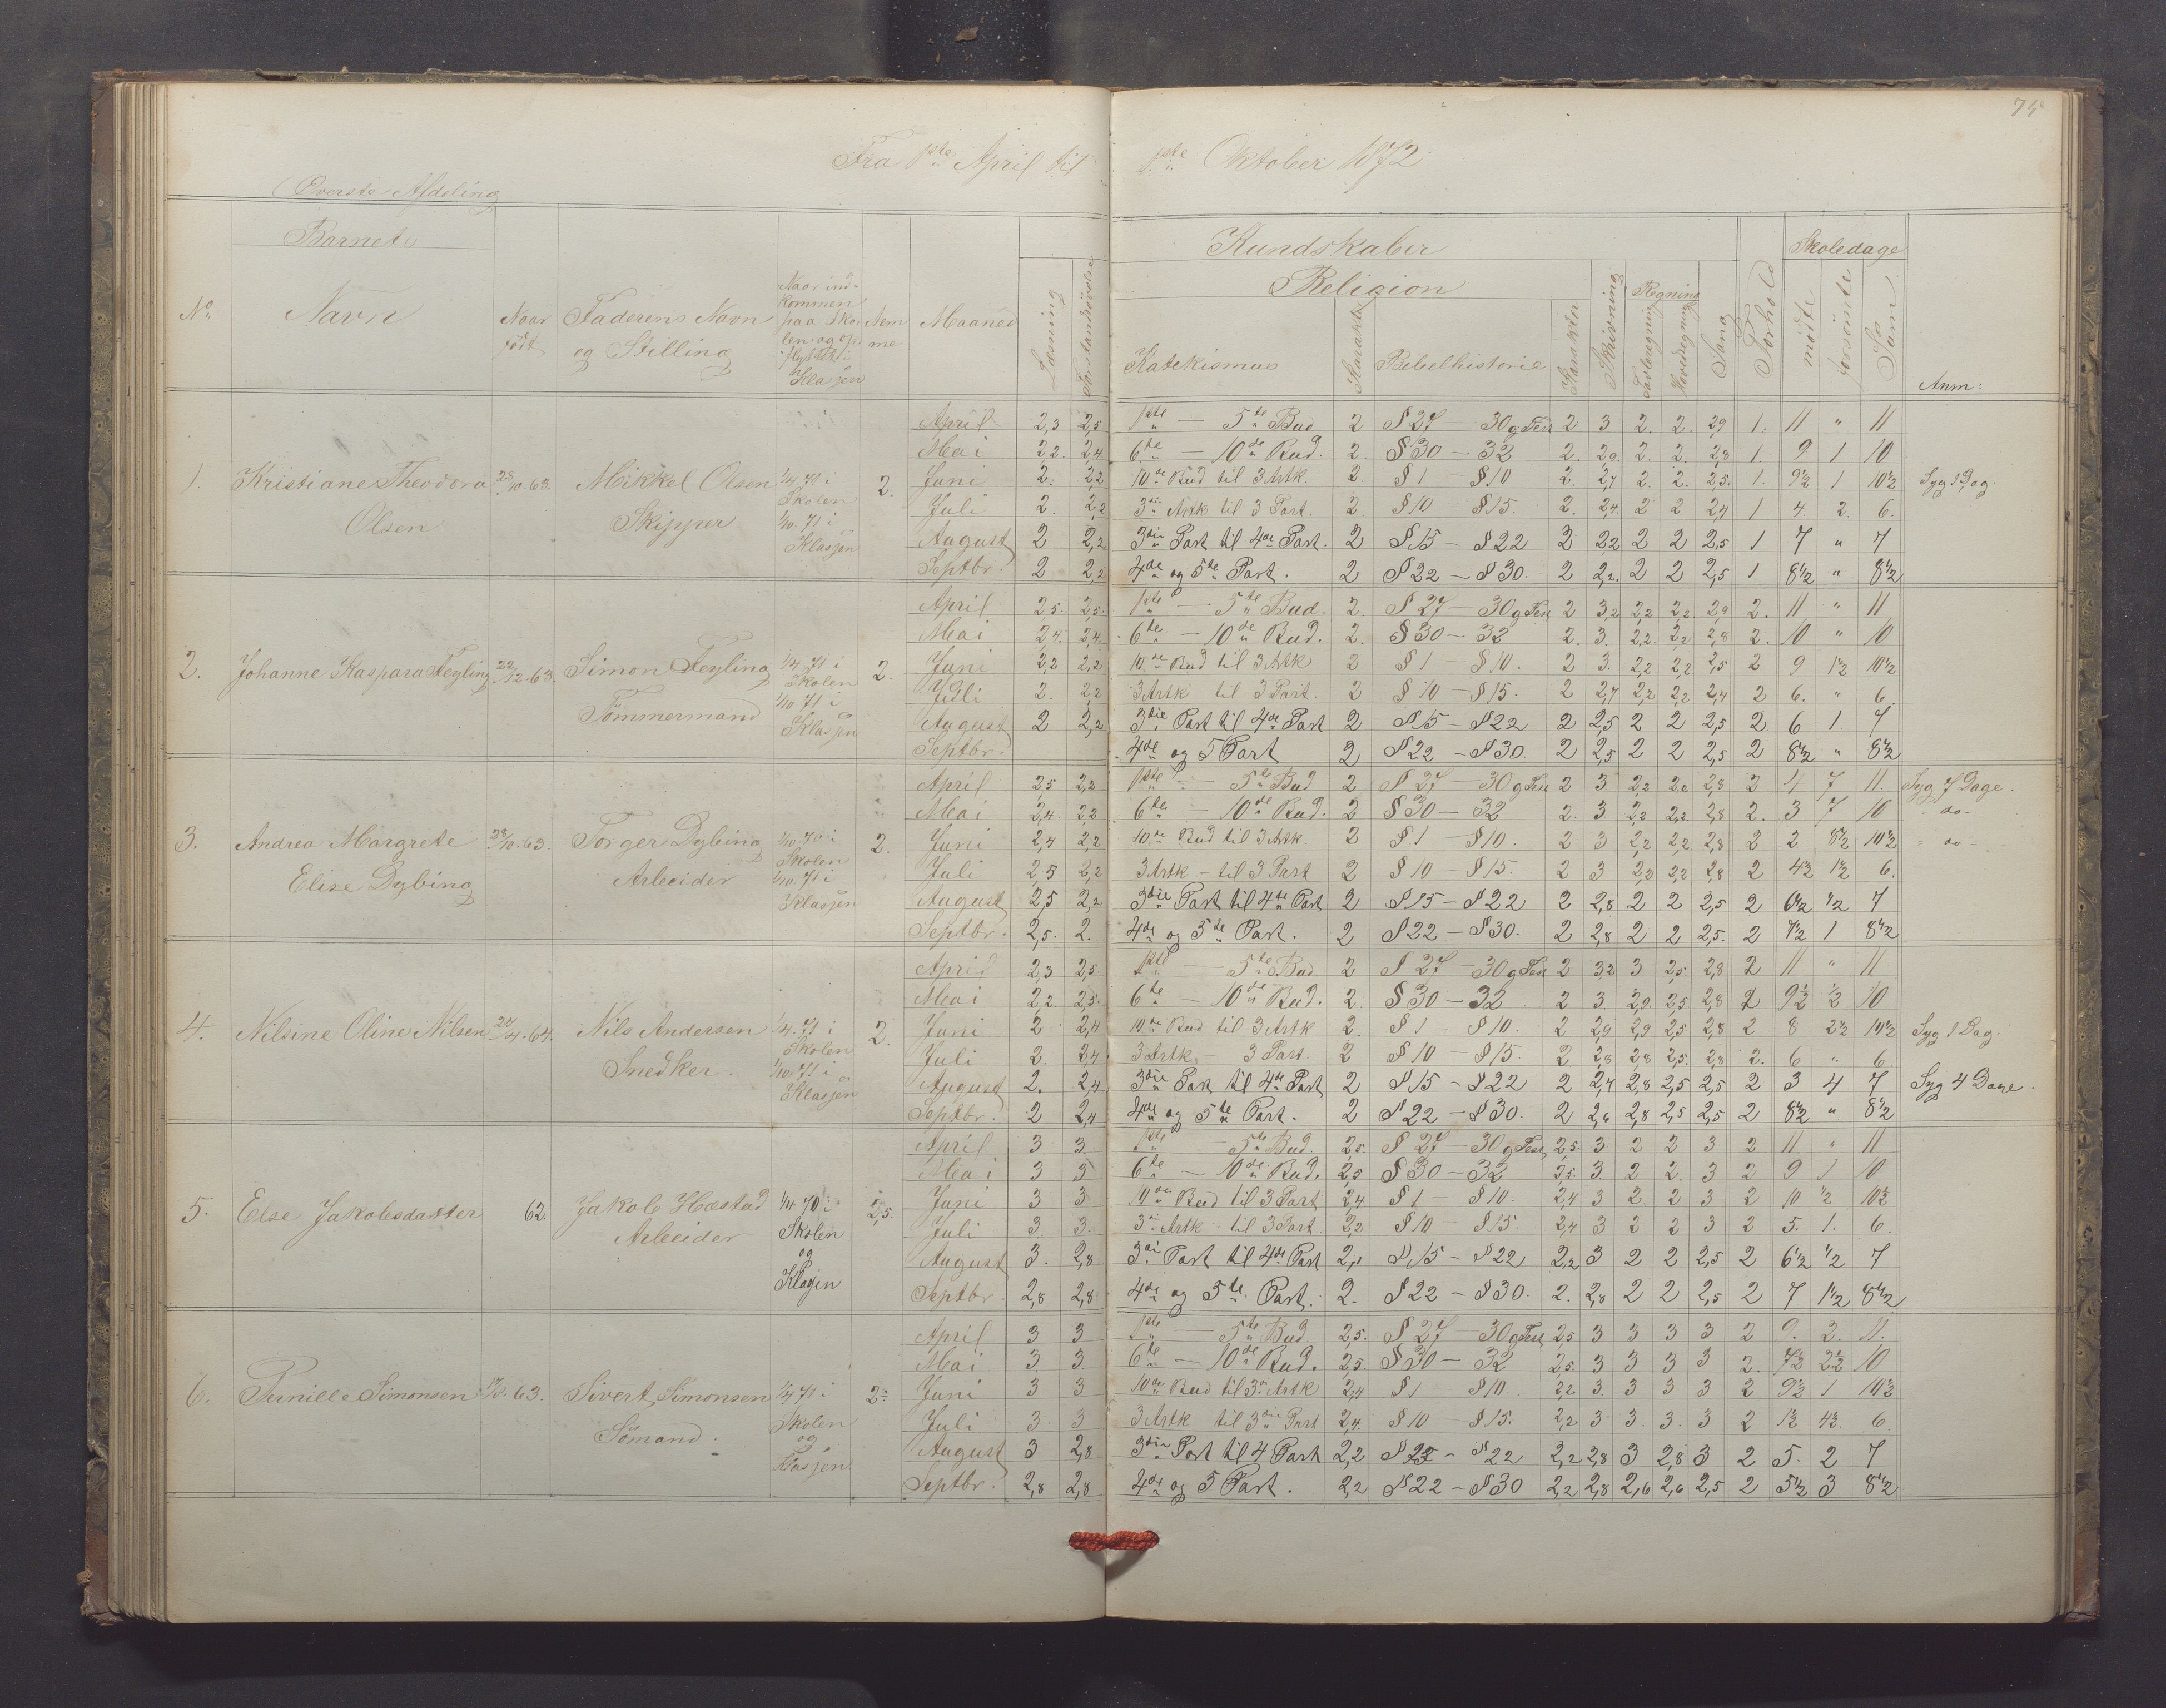 74
Fra 1ste April til 1ste Oktober 1872
Överste Afdeling
No.
Barnets
Navn
Naar födt
Faderens Navn og Stilling
Naar ind-
kommen
paa Sko-
len og op-
flyttet i
Klasjen
Maaned
Læsning
Kundskaber
Religion
Katekismus
Karakter
Bibelhistorie
Karakter
Skrivning
Regning
Tavleregning
Hovedregning
Sang
Forhold
Skoledage
mödte
forsömte
Sum
Anm:
1. Kristiane Theodora Olsen 28/10.63. Mikkel Olsen Skipper 1/4 70 i Skolen 1/10. 71 i Klasjen 2.
April 2,3 2,5 1ste — 5te Bud 2 § 27 — 30 g Tes 2 3 2. 2. 2,9 1. 11 " 11
Mai 2,2. 2,4 6te — 10de Bud. 2. § 30 — 32 2. 2,9. 2. 2. 2,8 1. 9 1 10
Juni 2. 2,2 10de Bud til 3 Artk. 2. § 1 — § 10 2. 2,7 2. 2. 2,5. 1. 9½ 1 10½ Syg 1 Dag.
Juli 2. 2,2 3die Artk til 3 Part. 2. § 10 — § 15. 2. 2,4. 2 2 2,4 1 4. 2. 6.
August 2 2,2 3die Part til 4de Part. 2 § 15 — § 22 2 2,2 2 2 2,5 1 7 " 7
Septbr. 2 2,2 4de og 5te Part. 2 § 22 — § 30. 2 2,2. 2 2 2,5 1 8½ " 8½
2. Johanne Kaspara Feyling 22/12-63. Simon Feyling Tömmermand 1/4 71 i Skolen 1/10 71 i Klasjen 2.
April 2,5. 2,5. 1ste — 5te Bud. 2. § 27 — 30 g Tes 2 3,2 2,2 2,2. 2,9 2. 11 " 11
Mai 2,4. 2,4. 6te — 10de Bud. 2. § 30 — 32 2. 3. 2,2. 2,2 2,8 2. 10 " 10
Juni 2,2 2,2 10de Bud til 3 Artk 2 § 1 — § 10. 2 3. 2,2 2,2 2,5 2 9 1½ 10½
Juli 2. 2,2 3 Artk til 3 Part. 2 § 10 — § 15. 2 2,7 2,2 2,2 2,4 2 6. " 6
August 2 2,2 3die Part til 4de Part 2 § 15 — § 22 2 2,5 2 2 2,5 2 6 1 7
Septbr. 4de og 5 Part 2 § 22 — § 30. 2 2,5 2 2 2,5 2 8½ " 8½
3. Andrea Margrete Elise Dybing 28/10.63. Torger Dybing Arbeider 1/10 70 i Skolen 1/10. 71 i Klasjen 2.
April 2,5 2,2 1ste — 5te Bud 2 § 27 — 30 g Tes 2 3 2,2 2,2 2,8 2 4 7 11. Syg 7 Dage.
Mai 2,4 2,2 6te — 10de Bud. 2 § 30 — 32 2. 3 2,2 2,2 2,8 2. 3 7 10 - do -
Juni 2,4 2,2 10de Bud til 3 Artk. 2 § 1 — § 10. 2 3 2,2 2,2 2,8 2 2 8½ 10½ - do -
Juli 2,5 2,2 3 Artk - til 3 Part 2 § 10 — § 15. 2 3 2,2 2,2 2,8 2 4½ 1½ 6.
August 2,5 2,2 3die Part til 4de Part 2 § 15 — § 22 2 2,8 2 2 2,5 2 6½ ½ 7
Septbr. 2,5. 2. 4de og 5te Part. 2 § 22 — § 30. 2 2,8 2 2 2,5. 2 7½ 1 8½
4. Nilsine Oline Nilsen 24/4.64. Nils Andersen Snedker. 1/4. 71 i Skolen 1/10 71 i Klasjen 2.
April 2,3 2,5. 1ste — 5te Bud 2 § 27 — 30 g Tes 2 3,2 3 2,5. 2,8 2 11 " 11
Mai 2,2 2,5. 6te — 10de Bud. 2. § 30 — 32 2 3. 2,9. 2,5 2,8 2 9½ ½ 10
Juni 2 2,4 10de Bud til 3 Artk 2. § 1 — § 10. 2 2,9 2,9 2,5 2,8 2 8 2½ 10½ Syg 1 Dag.
Juli 2. 2,4 3 Artk - 3 Part. 2 § 10 — § 15. 2 2,8 2,8 2,5. 2,8 2. 6 " 6
August 2. 2,4 3die Part til 4de Part 2 § 15 — § 22 2 2,7 2,8 2,5 2,5 2 3 4 7 Syg 4 Dage.
Septbr. 2 2,4 4de og 5te Part. 2 § 22 — § 30. 2 2,6 2,8 2,5 2,5 2 8½ " 8½
5. Else Jakobsdatter 62. Jakob Hæstad Arbeider 1/4 70 i Skolen og Klasjen 2,5.
April 3 3. 1ste 5te Bud. 2,5. § 27 — 30 g Tes 2,5 3 2 2 3 2 11 " 11
Mai 3 3 6te — 10de Bud. 2,5 § 30 — 32 2,5. 3. 2 2. 3 2 9 1 10
Juni 3 3 10de Bud til 3 Part 2,4 § 1 — § 10. 2,4 3 2 2 3 2 10 ½ 10½
Juli 3. 3. 3die Artk. til 3 Part. 2,2 § 10 — § 15. 2,4 3 2 2 3 2 5. 1. 6.
August 3. 2,8 3di Part til 4de Part § 15 — § 22 2,2 3 2 2 2,5 2 6½ ½ 7
Septbr. 2,8 2,8 4de og 5te Part. 2. § 22 — § 30. 2. 2,8 2 2 2,5 2 7 1½ 8½
6. Pernille Simonsen 63. Sivert Simonsen Sömand. 1/4 71 i Skolen og Klasjen
April 3 3 1ste — 5te Bud 2,5. § 27 — 30 g Tes 2,5 3 3 3 3 2 9. 2. 11.
Mai 3 3 6te — 10de Bud. 2,5. § 30 — 32 2,5 3 3 3 3 2. 7½ 2½ 10
Juni 3 3 10de Bud til 3die Artk 2,4 § 1 — § 10 2,2 3. 3 3 3 2 9½ 1 10½
Juli 3 3 3 Artk til 3die Part 2,4. § 10 — § 15. 2,2 3 3. 3. 3 2 1½ 4½ 6.
August 3 2,8 3die Part til 4 Part 2,2 § 22 2,2 2,8 3 2,8 3 2 5. 2 7
Septbr. 2,8 2,8 4de og 5 Part. 2,2 § 22 — § 30 2,2 2,8 2,6 2,6 2,5 2 5½ 3 8½